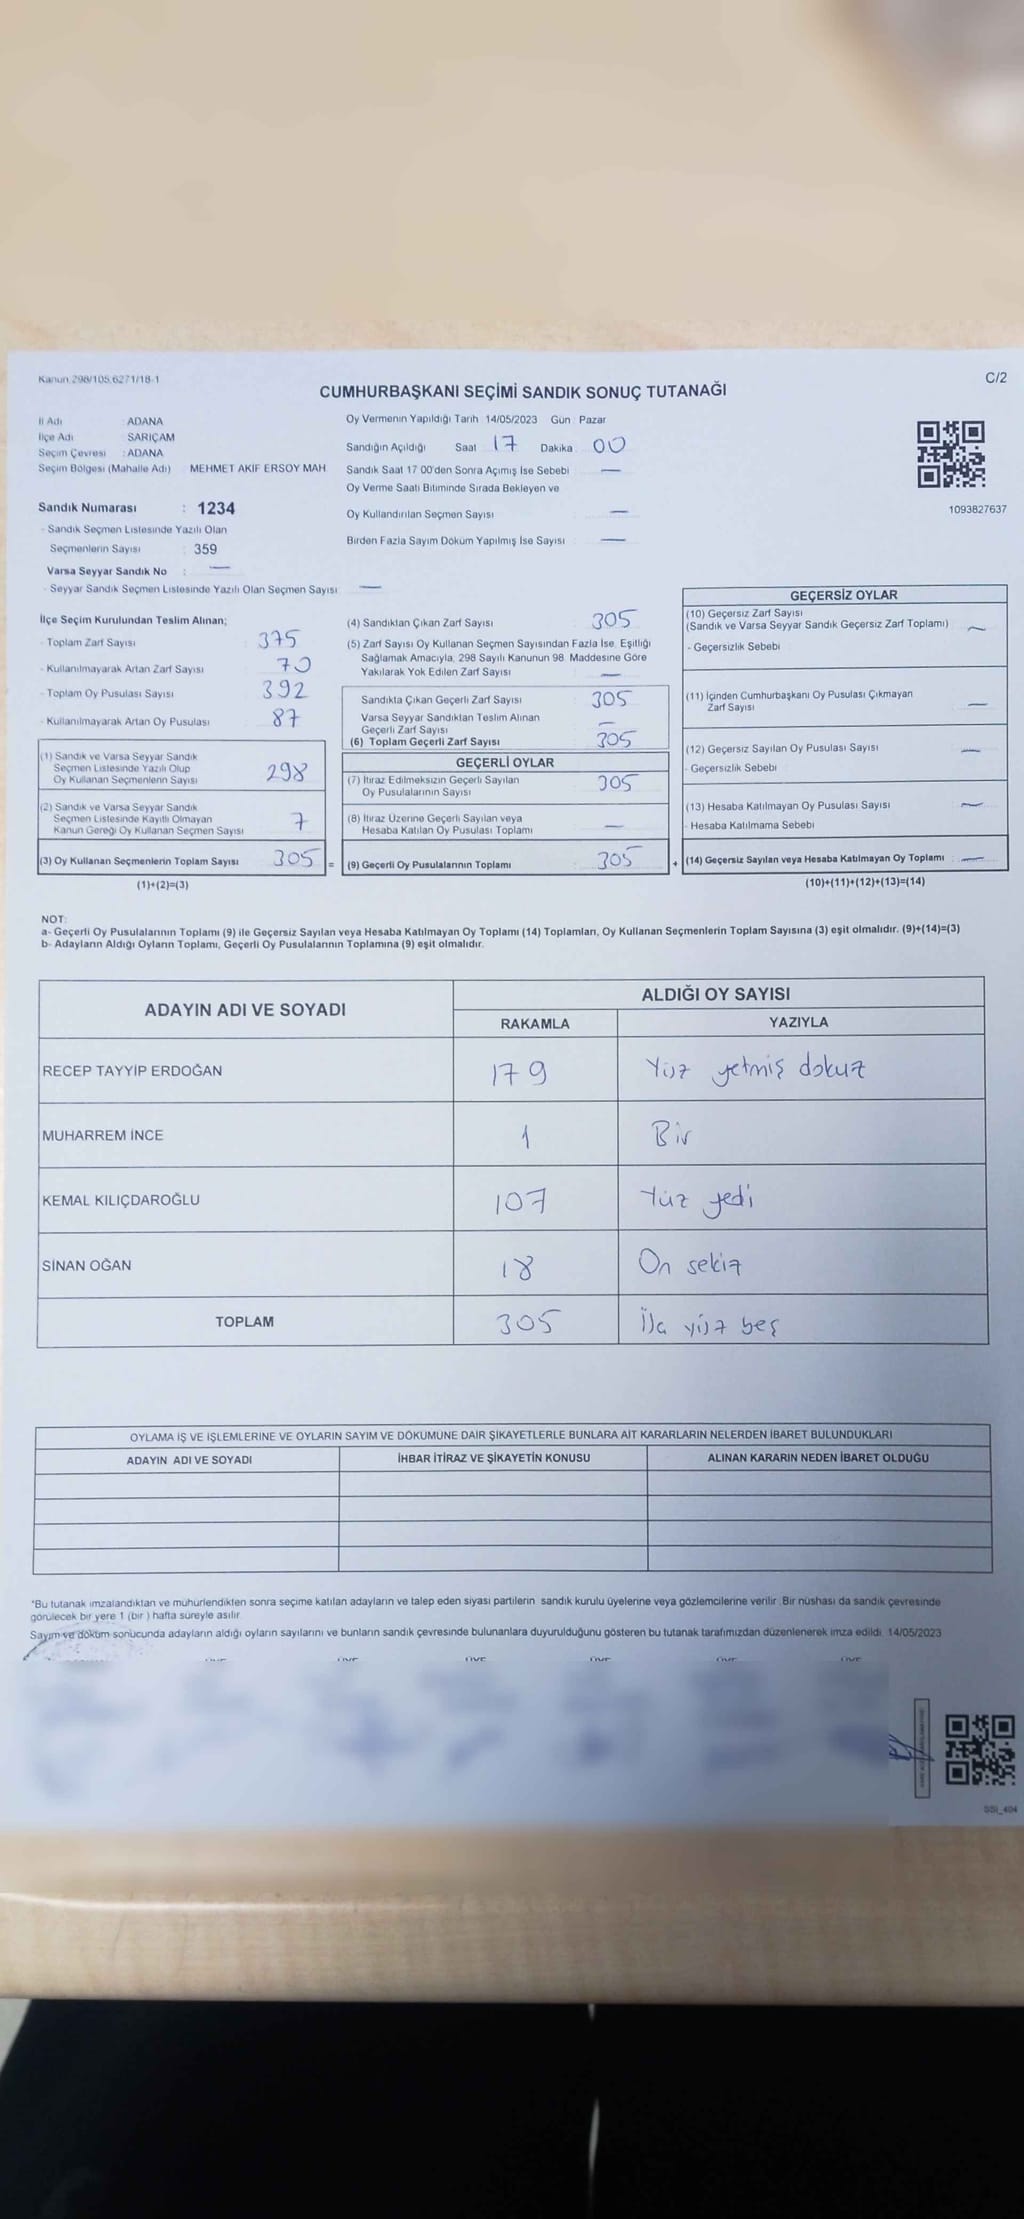 Kanun 298/105,6271/18-1
C/2
CUMHURBAŞKANI SEÇİMİ SANDIK SONUÇ TUTANAĞI
İl Adı : ADANA
İlçe Adı : SARIÇAM
Seçim Çevresi : ADANA
Seçim Bölgesi (Mahalle Adı) MEHMET AKİF ERSOY MAH
Sandık Numarası : 1234
- Sandık Seçmen Listesinde Yazılı Olan
Seçmenlerin Sayısı : 359
Varsa Seyyar Sandık No : —
- Seyyar Sandık Seçmen Listesinde Yazılı Olan Seçmen Sayısı : —
Oy Vermenin Yapıldığı Tarih 14/05/2023 Gün Pazar
Sandığın Açıldığı Saat 17 Dakika 00
Sandık Saat 17 00'den Sonra Açımış İse Sebebi —
Oy Verme Saati Bitiminde Sırada Bekleyen ve
Oy Kullandırılan Seçmen Sayısı —
Birden Fazla Sayım Döküm Yapılmış İse Sayısı —
1093827637
İlçe Seçim Kurulundan Teslim Alınan;
- Toplam Zarf Sayısı : 375
- Kullanılmayarak Artan Zarf Sayısı : 70
- Toplam Oy Pusulası Sayısı : 392
- Kullanılmayarak Artan Oy Pusulası : 87
(1) Sandık ve Varsa Seyyar Sandık
Seçmen Listesinde Yazılı Olup
Oy Kullanan Seçmenlerin Sayısı 298
(2) Sandık ve Varsa Seyyar Sandık
Seçmen Listesinde Kayıtlı Olmayan
Kanun Gereği Oy Kullanan Seçmen Sayısı 7
(3) Oy Kullanan Seçmenlerin Toplam Sayısı 305 =
(1)+(2)=(3)
(4) Sandıktan Çıkan Zarf Sayısı 305
(5) Zarf Sayısı Oy Kullanan Seçmen Sayısından Fazla İse, Eşitliği
Sağlamak Amacıyla, 298 Sayılı Kanunun 98. Maddesine Göre
Yakılarak Yok Edilen Zarf Sayısı —
Sandıkta Çıkan Geçerli Zarf Sayısı 305
Varsa Seyyar Sandıktan Teslim Alınan
Geçerli Zarf Sayısı —
(6) Toplam Geçerli Zarf Sayısı 305
GEÇERLİ OYLAR
(7) İtiraz Edilmeksizin Geçerli Sayılan
Oy Pusulalarının Sayısı 305
(8) İtiraz Üzerine Geçerli Sayılan veya
Hesaba Katılan Oy Pusulası Toplamı —
(9) Geçerli Oy Pusulalarının Toplamı 305 +
GEÇERSİZ OYLAR
(10) Geçersiz Zarf Sayısı
(Sandık ve Varsa Seyyar Sandık Geçersiz Zarf Toplamı) —
- Geçersizlik Sebebi
(11) İçinden Cumhurbaşkanı Oy Pusulası Çıkmayan
Zarf Sayısı —
(12) Geçersiz Sayılan Oy Pusulası Sayısı —
- Geçersizlik Sebebi
(13) Hesaba Katılmayan Oy Pusulası Sayısı —
- Hesaba Katılmama Sebebi
(14) Geçersiz Sayılan veya Hesaba Katılmayan Oy Toplamı : —
(10)+(11)+(12)+(13)=(14)
NOT:
a- Geçerli Oy Pusulalarının Toplamı (9) ile Geçersiz Sayılan veya Hesaba Katılmayan Oy Toplamı (14) Toplamları, Oy Kullanan Seçmenlerin Toplam Sayısına (3) eşit olmalıdır. (9)+(14)=(3)
b- Adayların Aldığı Oyların Toplamı, Geçerli Oy Pusulalarının Toplamına (9) eşit olmalıdır.
ADAYIN ADI VE SOYADI
ALDIĞI OY SAYISI
RAKAMLA YAZIYLA
RECEP TAYYİP ERDOĞAN 179 Yüz yetmiş dokuz
MUHARREM İNCE 1 Bir
KEMAL KILIÇDAROĞLU 107 Yüz yedi
SİNAN OĞAN 18 On sekiz
TOPLAM 305 yüz beş
OYLAMA İŞ VE İŞLEMLERİNE VE OYLARIN SAYIM VE DÖKÜMÜNE DAİR ŞİKAYETLERLE BUNLARA AİT KARARLARIN NELERDEN İBARET BULUNDUKLARI
ADAYIN ADI VE SOYADI İHBAR İTİRAZ VE ŞİKAYETİN KONUSU ALINAN KARARIN NEDEN İBARET OLDUĞU
*Bu tutanak imzalandıktan ve mühürlendikten sonra seçime katılan adayların ve talep eden siyasi partilerin sandık kurulu üyelerine veya gözlemcilerine verilir. Bir nüshası da sandık çevresinde
görülecek bir yere 1 (bir ) hafta süreyle asılır.
Sayım ve döküm sonucunda adayların aldığı oyların sayılarını ve bunların sandık çevresinde bulunanlara duyurulduğunu gösteren bu tutanak tarafımızdan düzenlenerek imza edildi. 14/05/2023